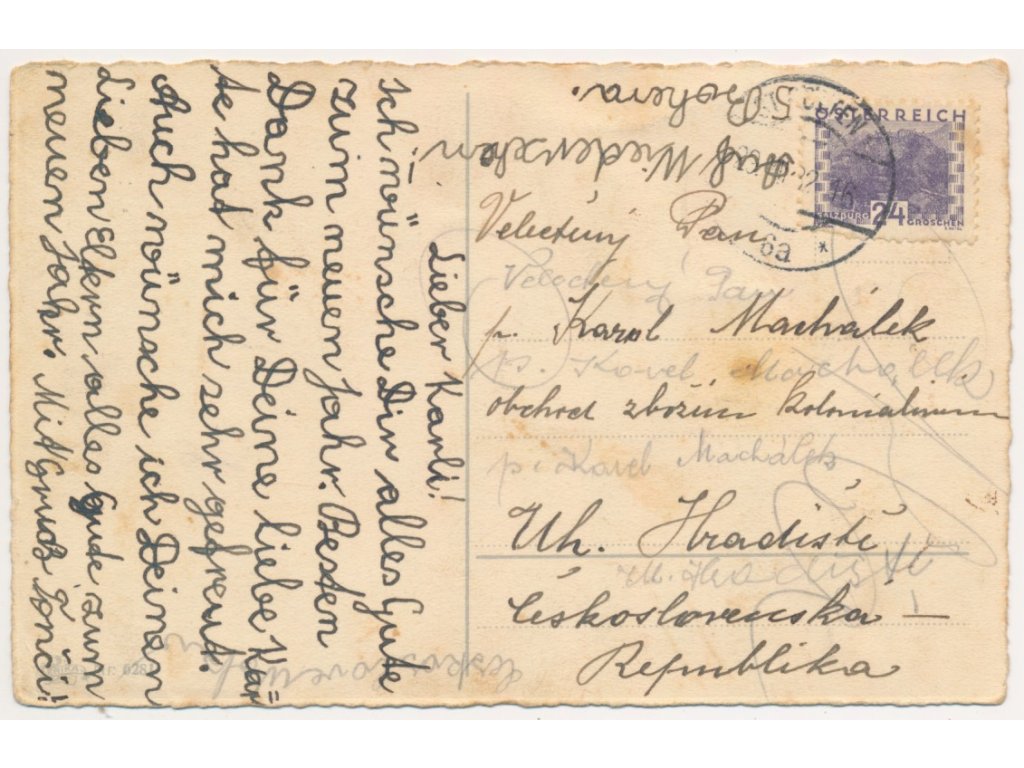 Lieber Karli!
Ich wünsche Dir alles Gute
zum neuen Jahr. Besten
Dank für Deine liebe Kar=
te hat mich sehr gefreut.
Auch wünsche ich Deinen
lieben Eltern alles Gude zum
neuen Jahr. Mit Gruß Tonči!
Auf Wiedersehen
ÖSTERREICH
SALZBURG 24 GROSCHEN
6a *
Veletúný Pan
Pan
p. Karol Machálek
p. Karel Machálek
obchod zbožím kolonialinum
p. Karel Machálek
Uh. Hradiště
Uh. Hradiště
Československá —
Republika
6281